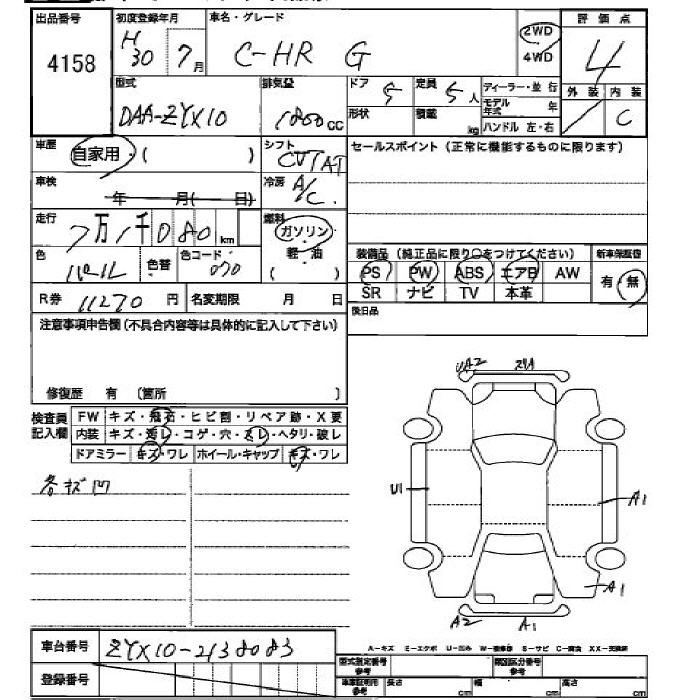 出品番号 初度登録年月 車名・グレード 2WD 4WD 評価点
4158 H30 7月 C-HR G 4
型式 排気量 ドア 5 定員 5人 ディーラー・並行 外装 内装
DAA-ZYX10 1800cc 形状 積載 kg モデル年式 年 ハンドル 左・右 C
車歴 自家用・( ) シフト CVT AT セールスポイント(正常に機能するものに限ります)
車検 年 月( 日) 冷房 A/C
走行 7万1千080km 燃料 ガソリン・軽・油 ( )
色 パール 色替 色コード 070 装備品(純正品に限り○をつけてください) 新車保証書
PS PW ABS エアB AW 有・無
R券 11270円 名変期限 月 日 SR ナビ TV 本革
注意事項申告欄(不具合内容等は具体的に記入して下さい) 後日品
修復歴 有 〔箇所 〕
検査員記入欄 FW キズ・飛石・ヒビ割・リペア跡・X要
内装 キズ・汚レ・コゲ・穴・スレ・ヘタリ・破レ
ドアミラー キズ・ワレ ホイール・キャップ キズ・ワレ
各キズ凹
A2
U1 A1
A1
A2 A1
車台番号 ZYX10-2138083
A-キズ E-エクボ U-凹み S-サビ C-腐食
登録番号 型式指定番号 参考 類別区分番号 参考
車庫証明用 参考 長さ cm 幅 cm 高さ cm